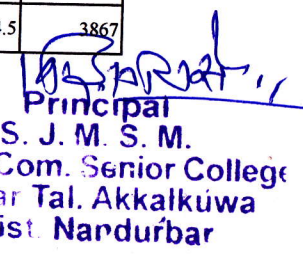 4.5 3867
Principal
S. J. M. S. M.
Com. Senior College
ar Tal. Akkalkuwa
ist. Nandurbar